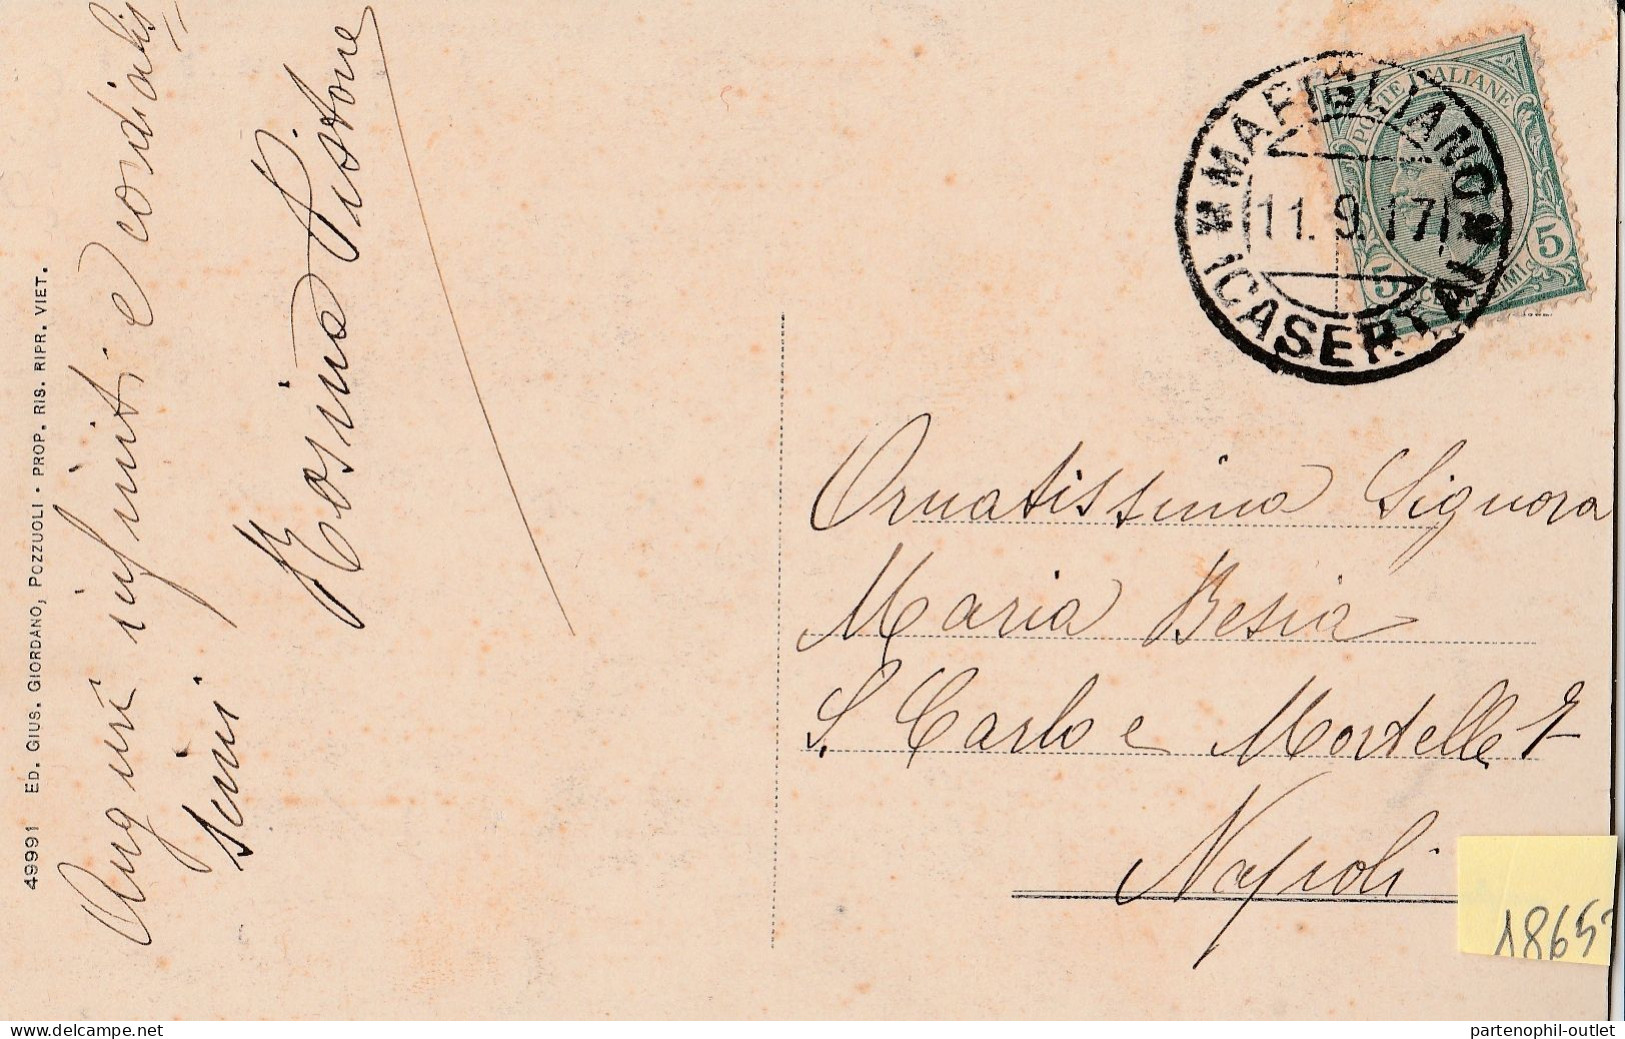 Auguri infiniti e cordialis
simi
Rosina Pistone
49991 ED. GIUS. GIORDANO, POZZUOLI · PROP. RIS. RIPR. VIET.
POSTE ITALIANE
5 CENTESIMI 5
MARIGLIANO
11.9.17
(CASERTA)
Ornatissima Signora
Maria Besia
S. Carlo e Mortelle 7
Napoli
1865
partenophil-outlet
delcampe.net